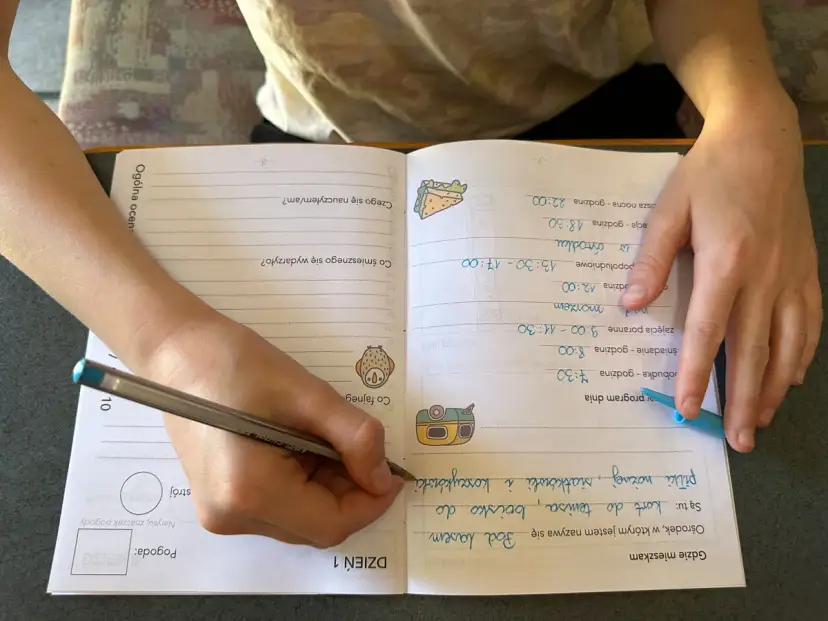 Gdzie mieszkam
Ośrodek, w którym jestem nazywa się Pod Lasem
Są tu: kort do tenisa, boisko do
piłki nożnej, siatkówki i koszykówki
program dnia
pobudka - godzina 7:30
śniadanie - godzina 8:00
zajęcia poranne 9:00 - 11:30
morzem
godzina 12:00
popołudniowe 13:30 - 17:00
w ośrodku
godzina 18:30
cisza nocna - godzina 22:00
DZIEŃ 1
Pogoda:
Narysuj znaczek pogody
10
Co
Co śmiesznego się wydarzyło?
Czego się nauczyłem/am?
Ogólna